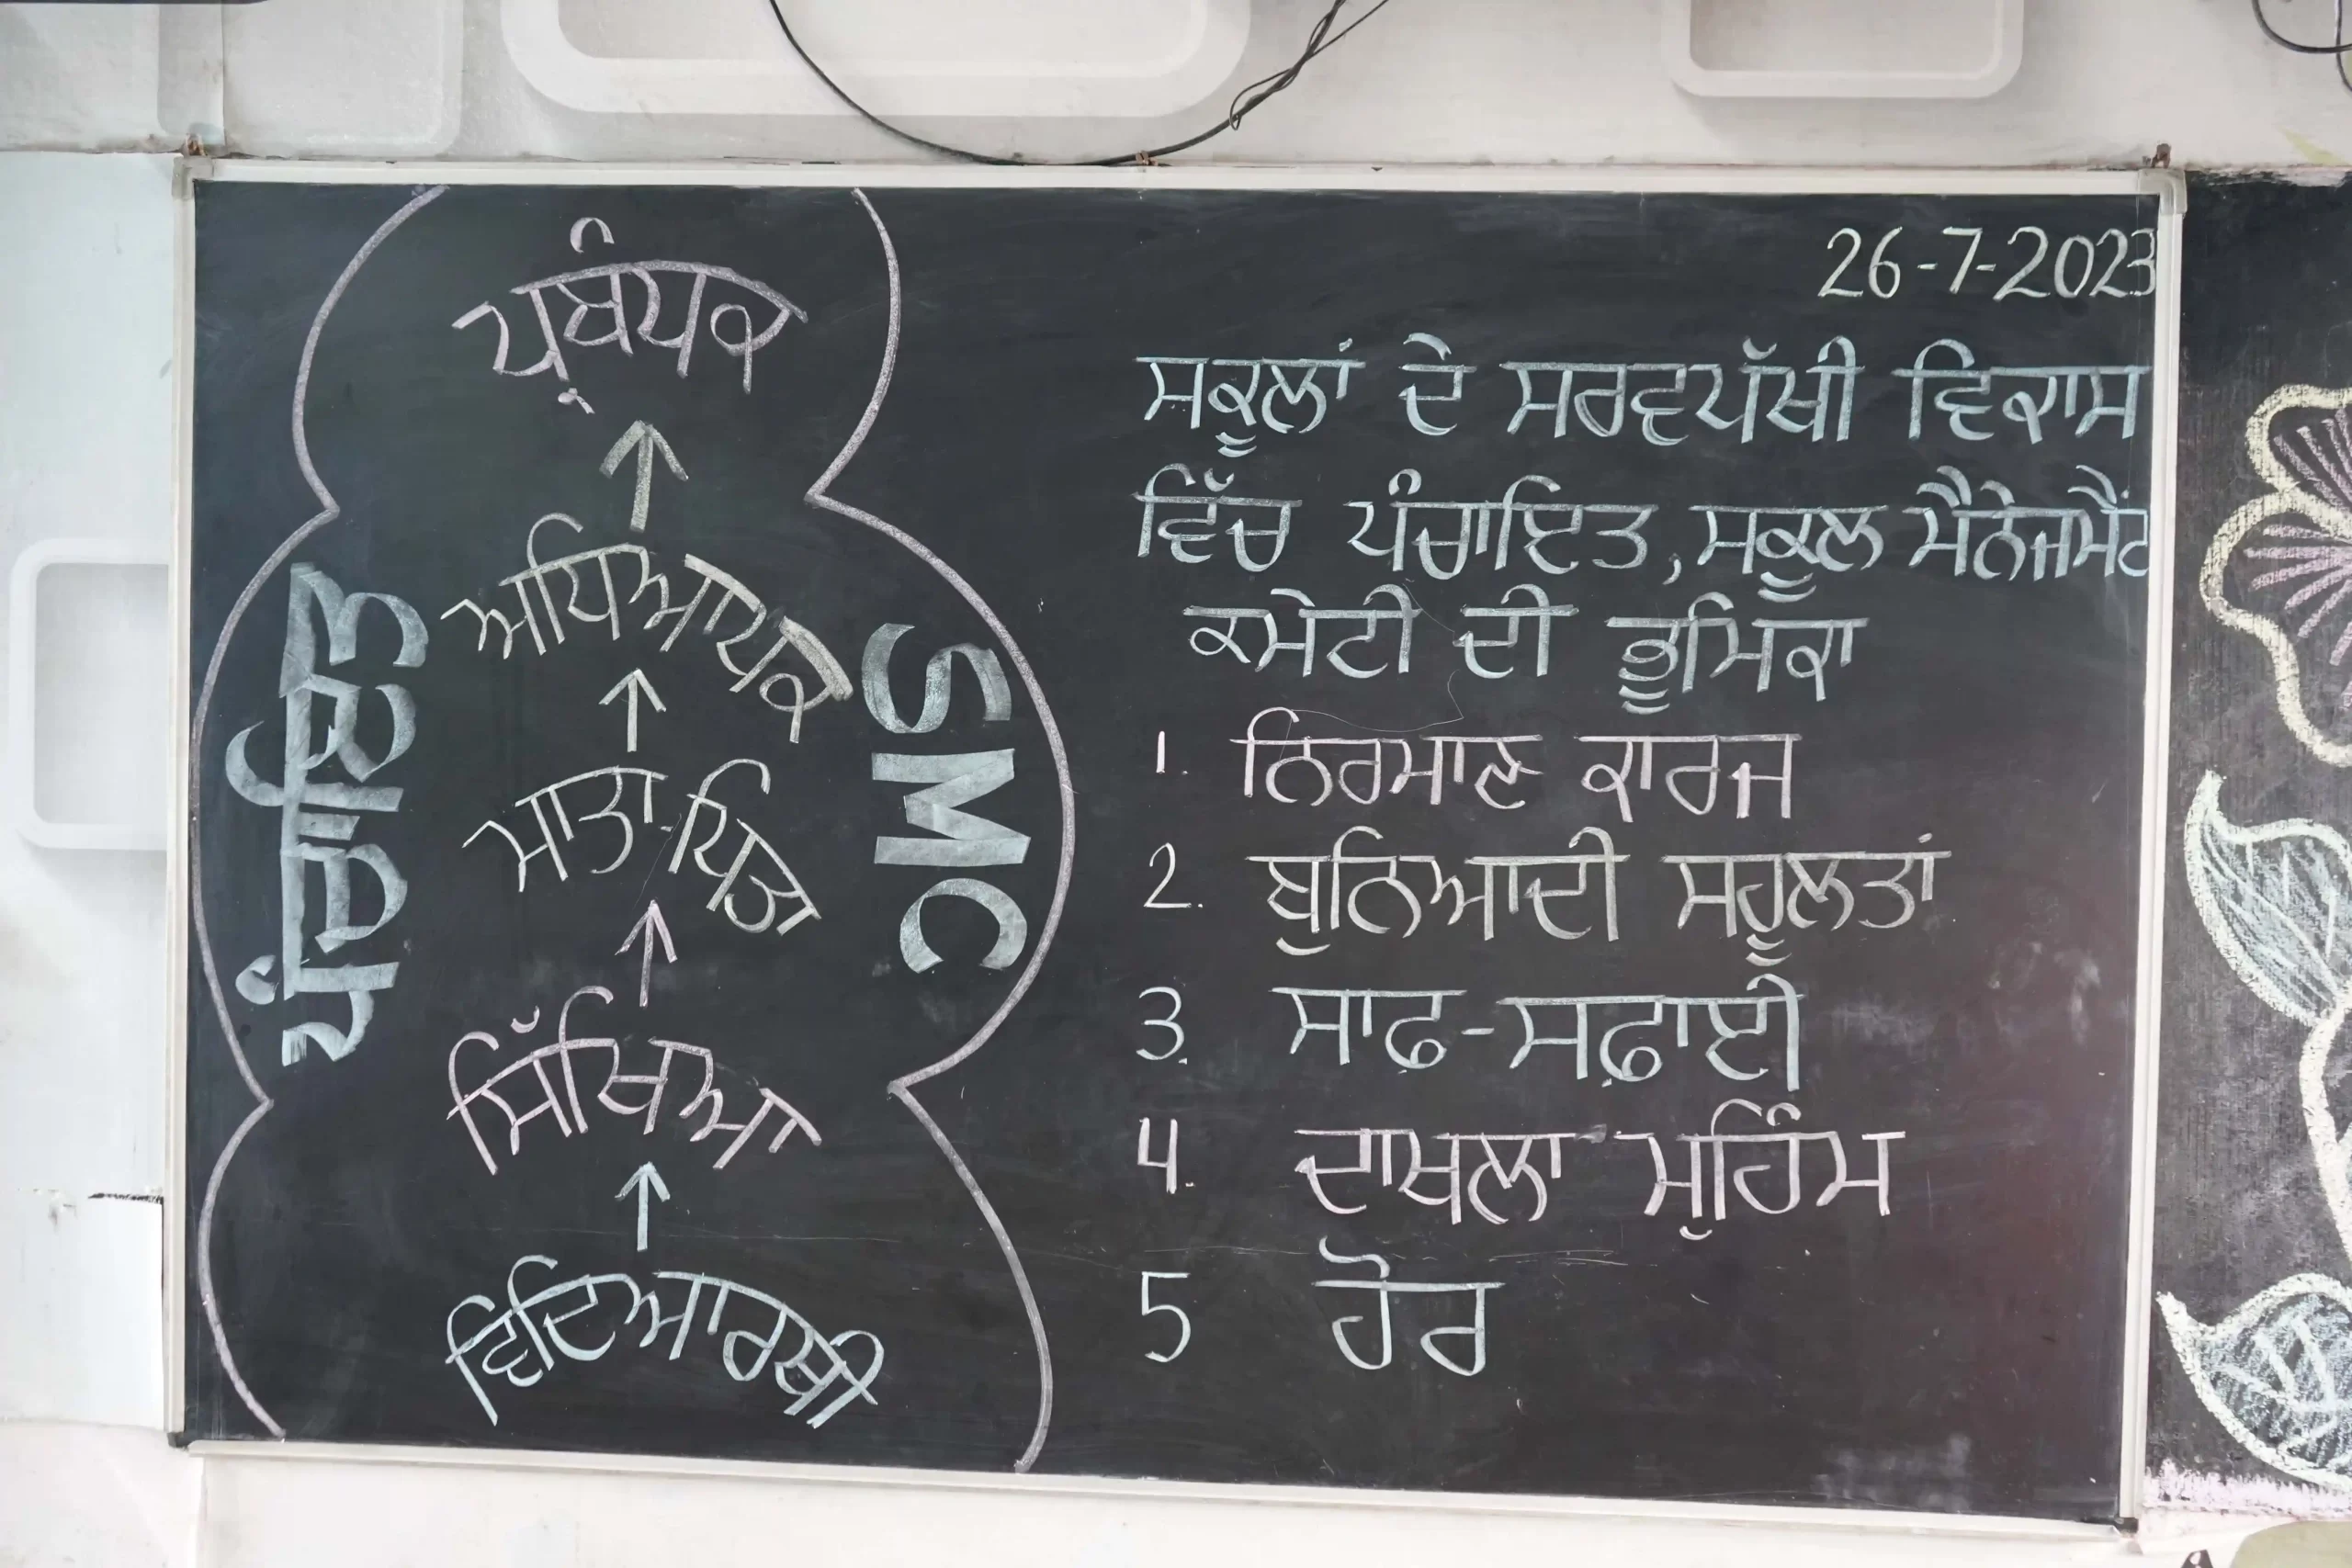 ਪ੍ਰਬੰਧਕ
ਅਧਿਆਪਕ
ਮਾਤਾ-ਪਿਤਾ
ਸਿੱਖਿਆ
ਵਿਦਿਆਰਥੀ
ਪੰਚਾਇਤ
SMC
26-7-2023
ਸਕੂਲਾਂ ਦੇ ਸਰਵਪੱਖੀ ਵਿਕਾਸ
ਵਿੱਚ ਪੰਚਾਇਤ, ਸਕੂਲ ਮੈਨੇਜਮੈਂਟ
ਕਮੇਟੀ ਦੀ ਭੂਮਿਕਾ
1. ਨਿਰਮਾਣ ਕਾਰਜ
2. ਬੁਨਿਆਦੀ ਸਹੂਲਤਾਂ
3. ਸਾਫ਼-ਸਫ਼ਾਈ
4. ਦਾਖਲਾ ਮੁਹਿੰਮ
5 ਹੋਰ